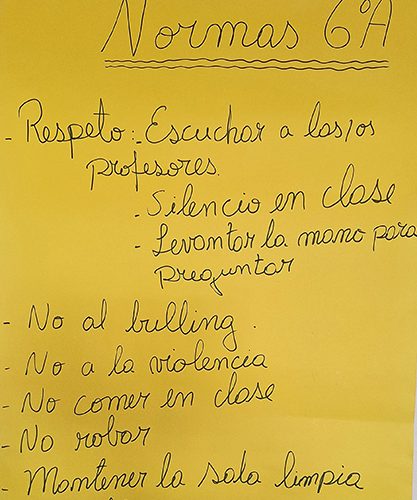 Normas 6ºA
- Respeto: - Escuchar a las/os
profesores.
- Silencio en clase
- Levantar la mano para
preguntar
- No al bulling.
- No a la violencia
- No comer en clase
- No robar
- Mantener la sala limpia